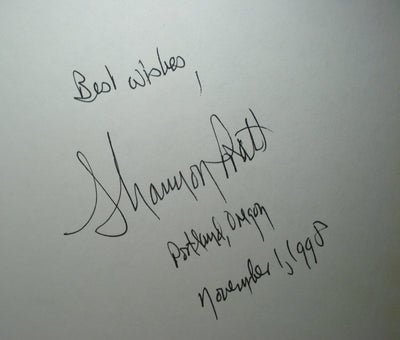 Best wishes,
Shannon Pratt
Portland, Oregon
November 1, 1998